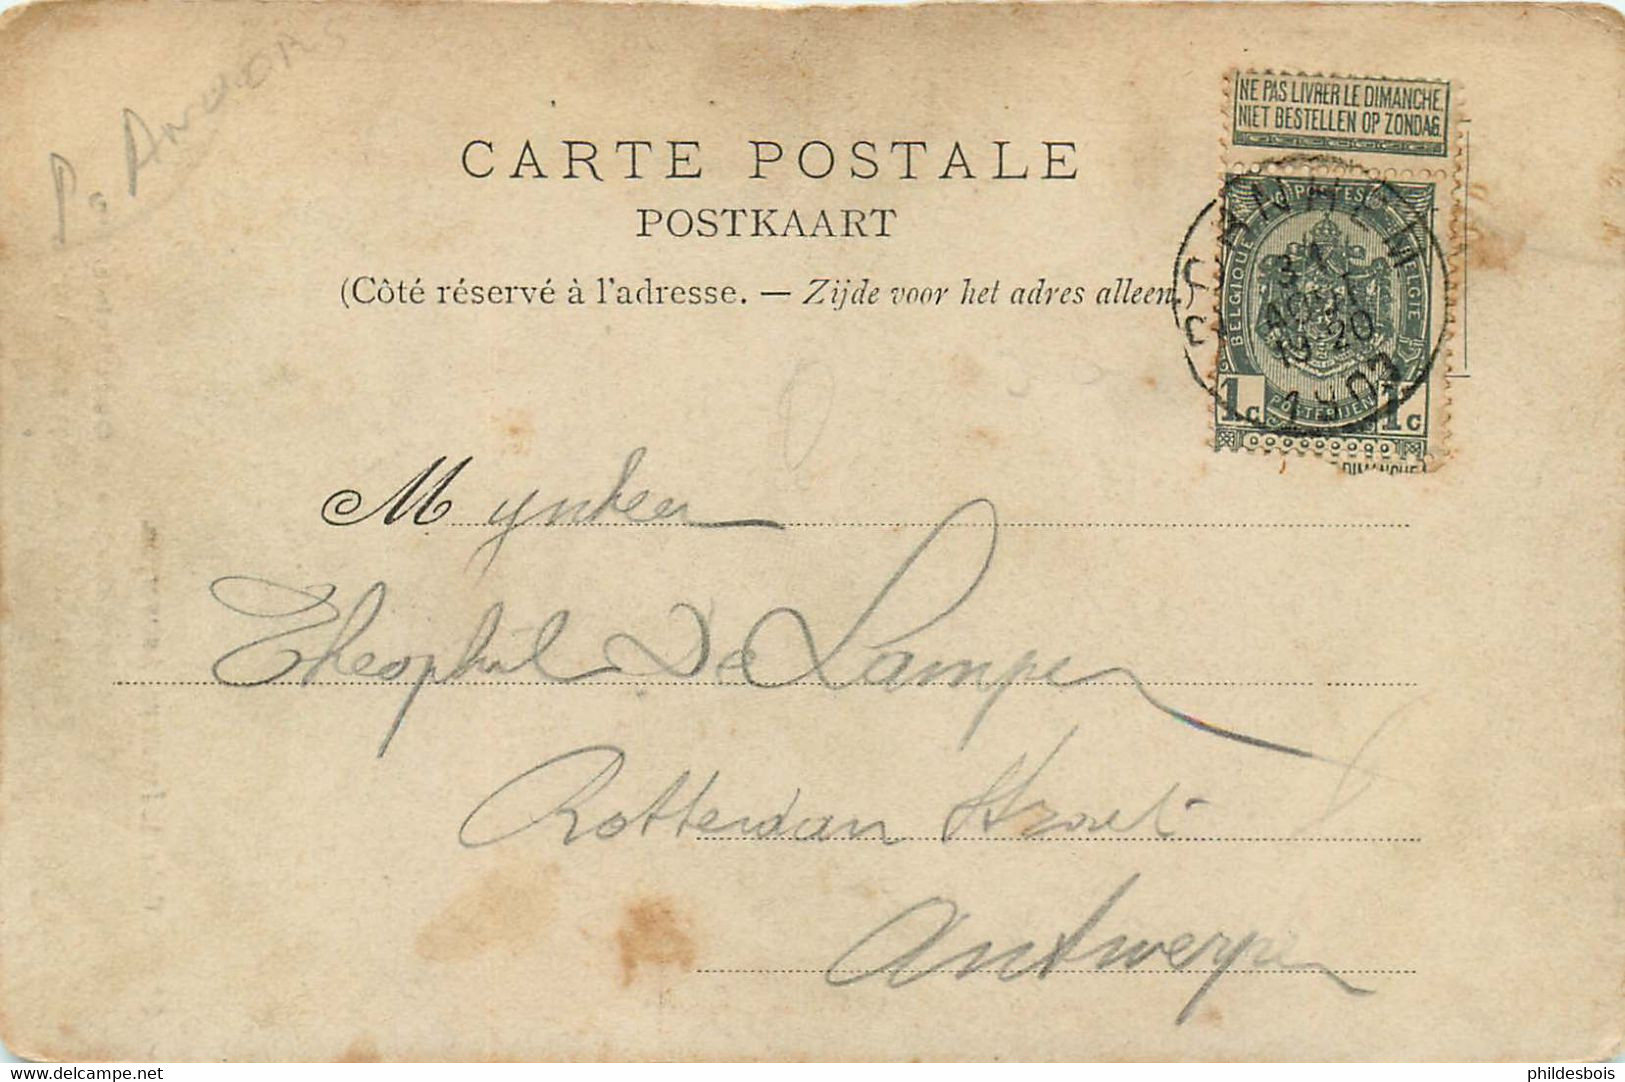 P. Andors
NE PAS LIVRER LE DIMANCHE.
NIET BESTELLEN OP ZONDAG.
CARTE POSTALE
POSTKAART
(Côté réservé à l'adresse. — Zijde voor het adres alleen.)
POSTES
BELGIQUE BELGIE
31
AOUT
1903
POSTERIJEN
1c 1c
DIMANCHE
Mynheer
Theophiel De Lamper
Rotterdam Straet
Antwerpen
www.delcampe.net
phildesbois